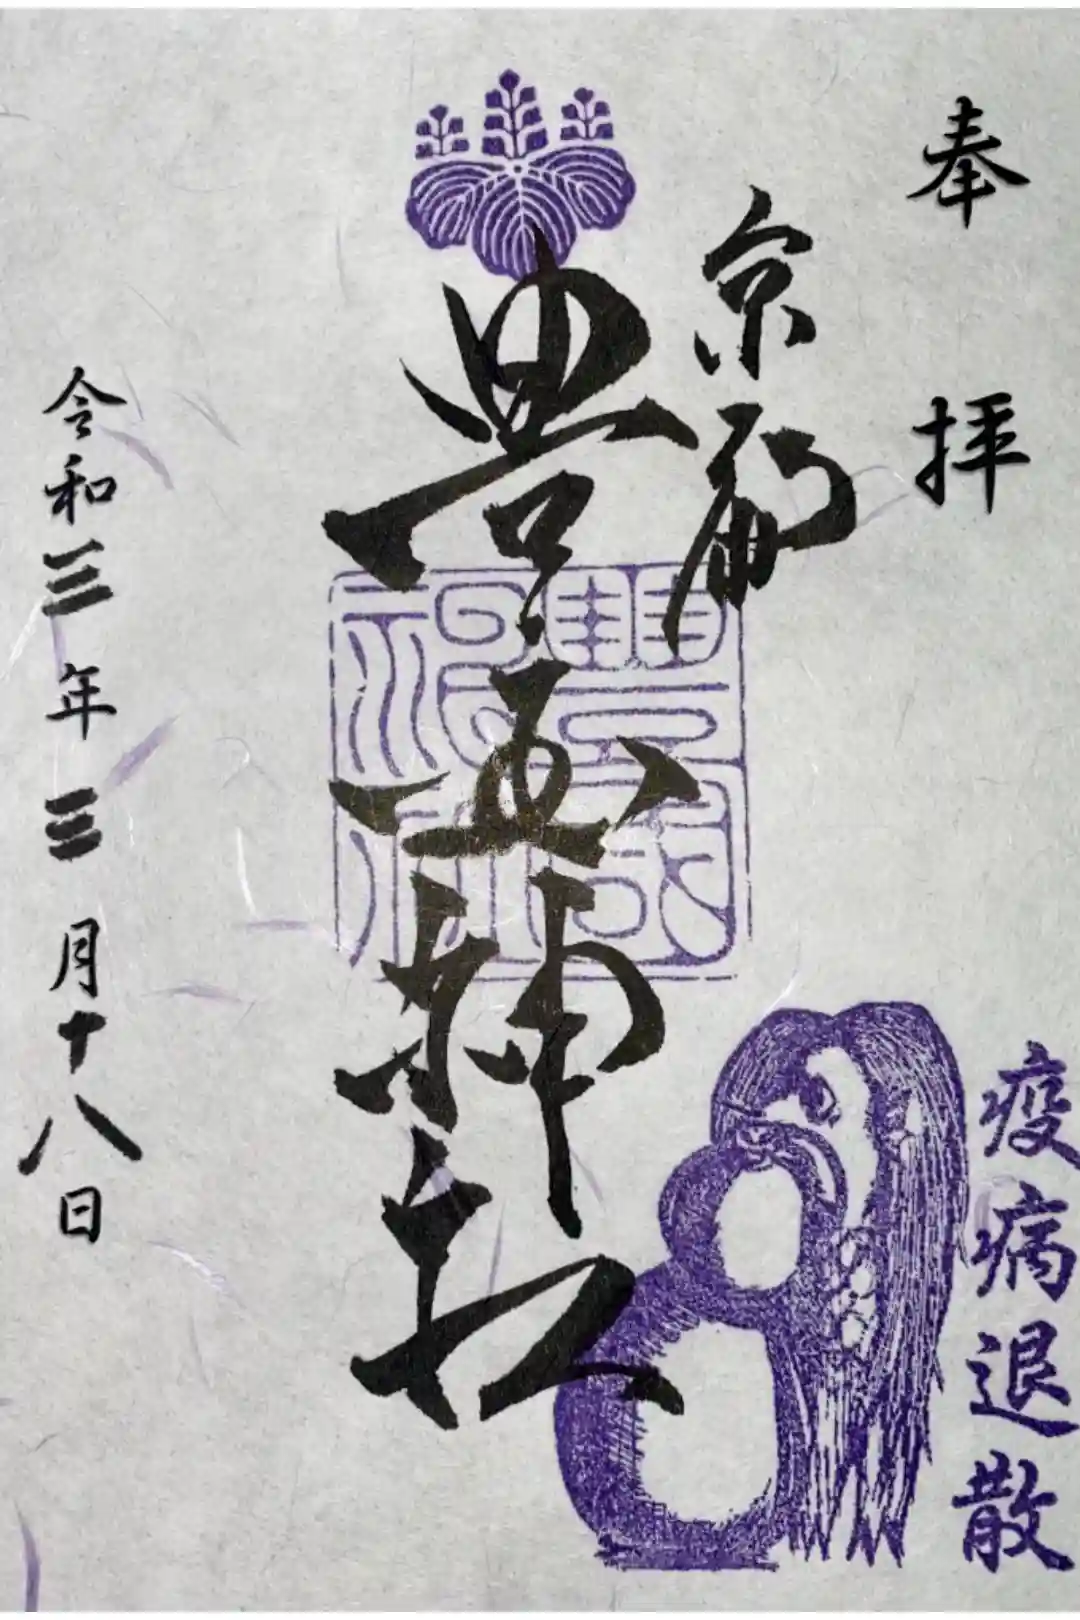 奉拝
京都
豊国神社
豐國
神社
疫病退散
令和三年三月十八日